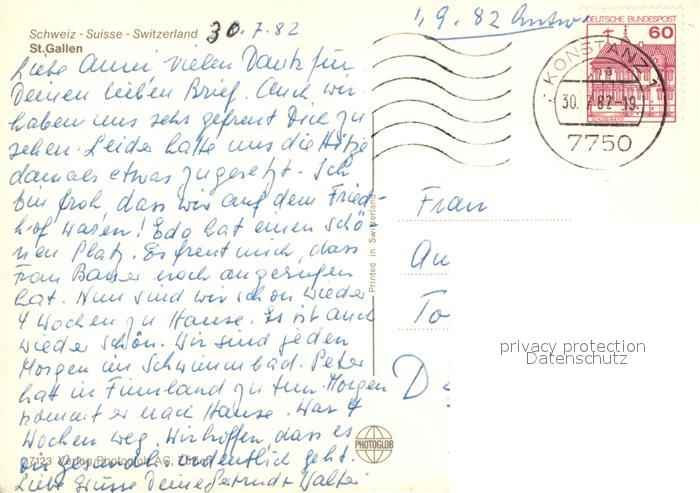 Schweiz - Suisse - Switzerland 30.7.82
St.Gallen
1.9.82
DEUTSCHE BUNDESPOST
60
KONSTANZ 1
30. 7.82-19
7750
Liebe Anni, vielen Dank für
Deinen lieben Brief. Auch wir
haben uns sehr gefreut Dich zu
sehen. Leider hatte uns die Hitze
damals etwas zugesetzt. Ich
bin froh, dass wir auf dem Fried-
hof waren! Edo hat einen schö-
nen Platz. Es freut mich, dass
Frau Bauer noch angerufen
hat. Nun sind wir schon wieder
4 Wochen zu Hause. Es ist auch
wieder schön. Wir sind jeden
Morgen im Schwimmbad. Peter
hat in Finnland zu tun. Morgen
kommt er nach Hause. War 4
Wochen weg. Wir hoffen, dass es
gesundh. ordentlich geht.
Liebe Grüsse Deine Gertrud + Walter
Printed in Switzerland
Frau
An
To
D
privacy protection
Datenschutz
PHOTOGLOB
Verlag Photoglob AG, Zürich